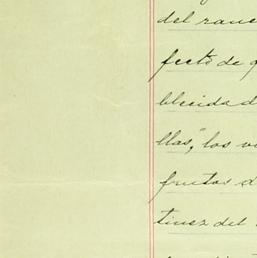 del ranc
fecto de q
blecida d
llas," los v
frutos d
tinez del